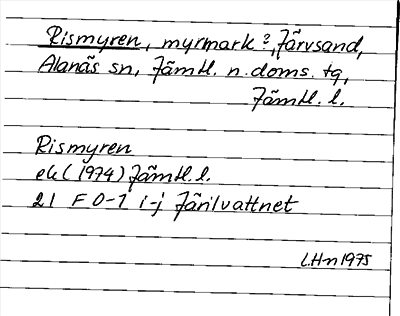 Rismyren, myrmark?, Järvsand,
Alanäs sn, Jämtl. n. doms. tg,
Jämtl. l.
Rismyren
ek (1974) Jämtl. l.
21 F 0-1 i-j Järilvattnet
L.H-n 1975